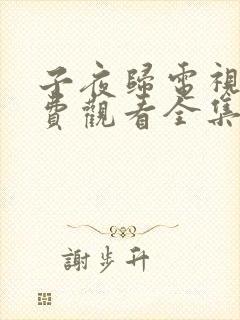 子夜歸電視
費觀看全集
謝步升